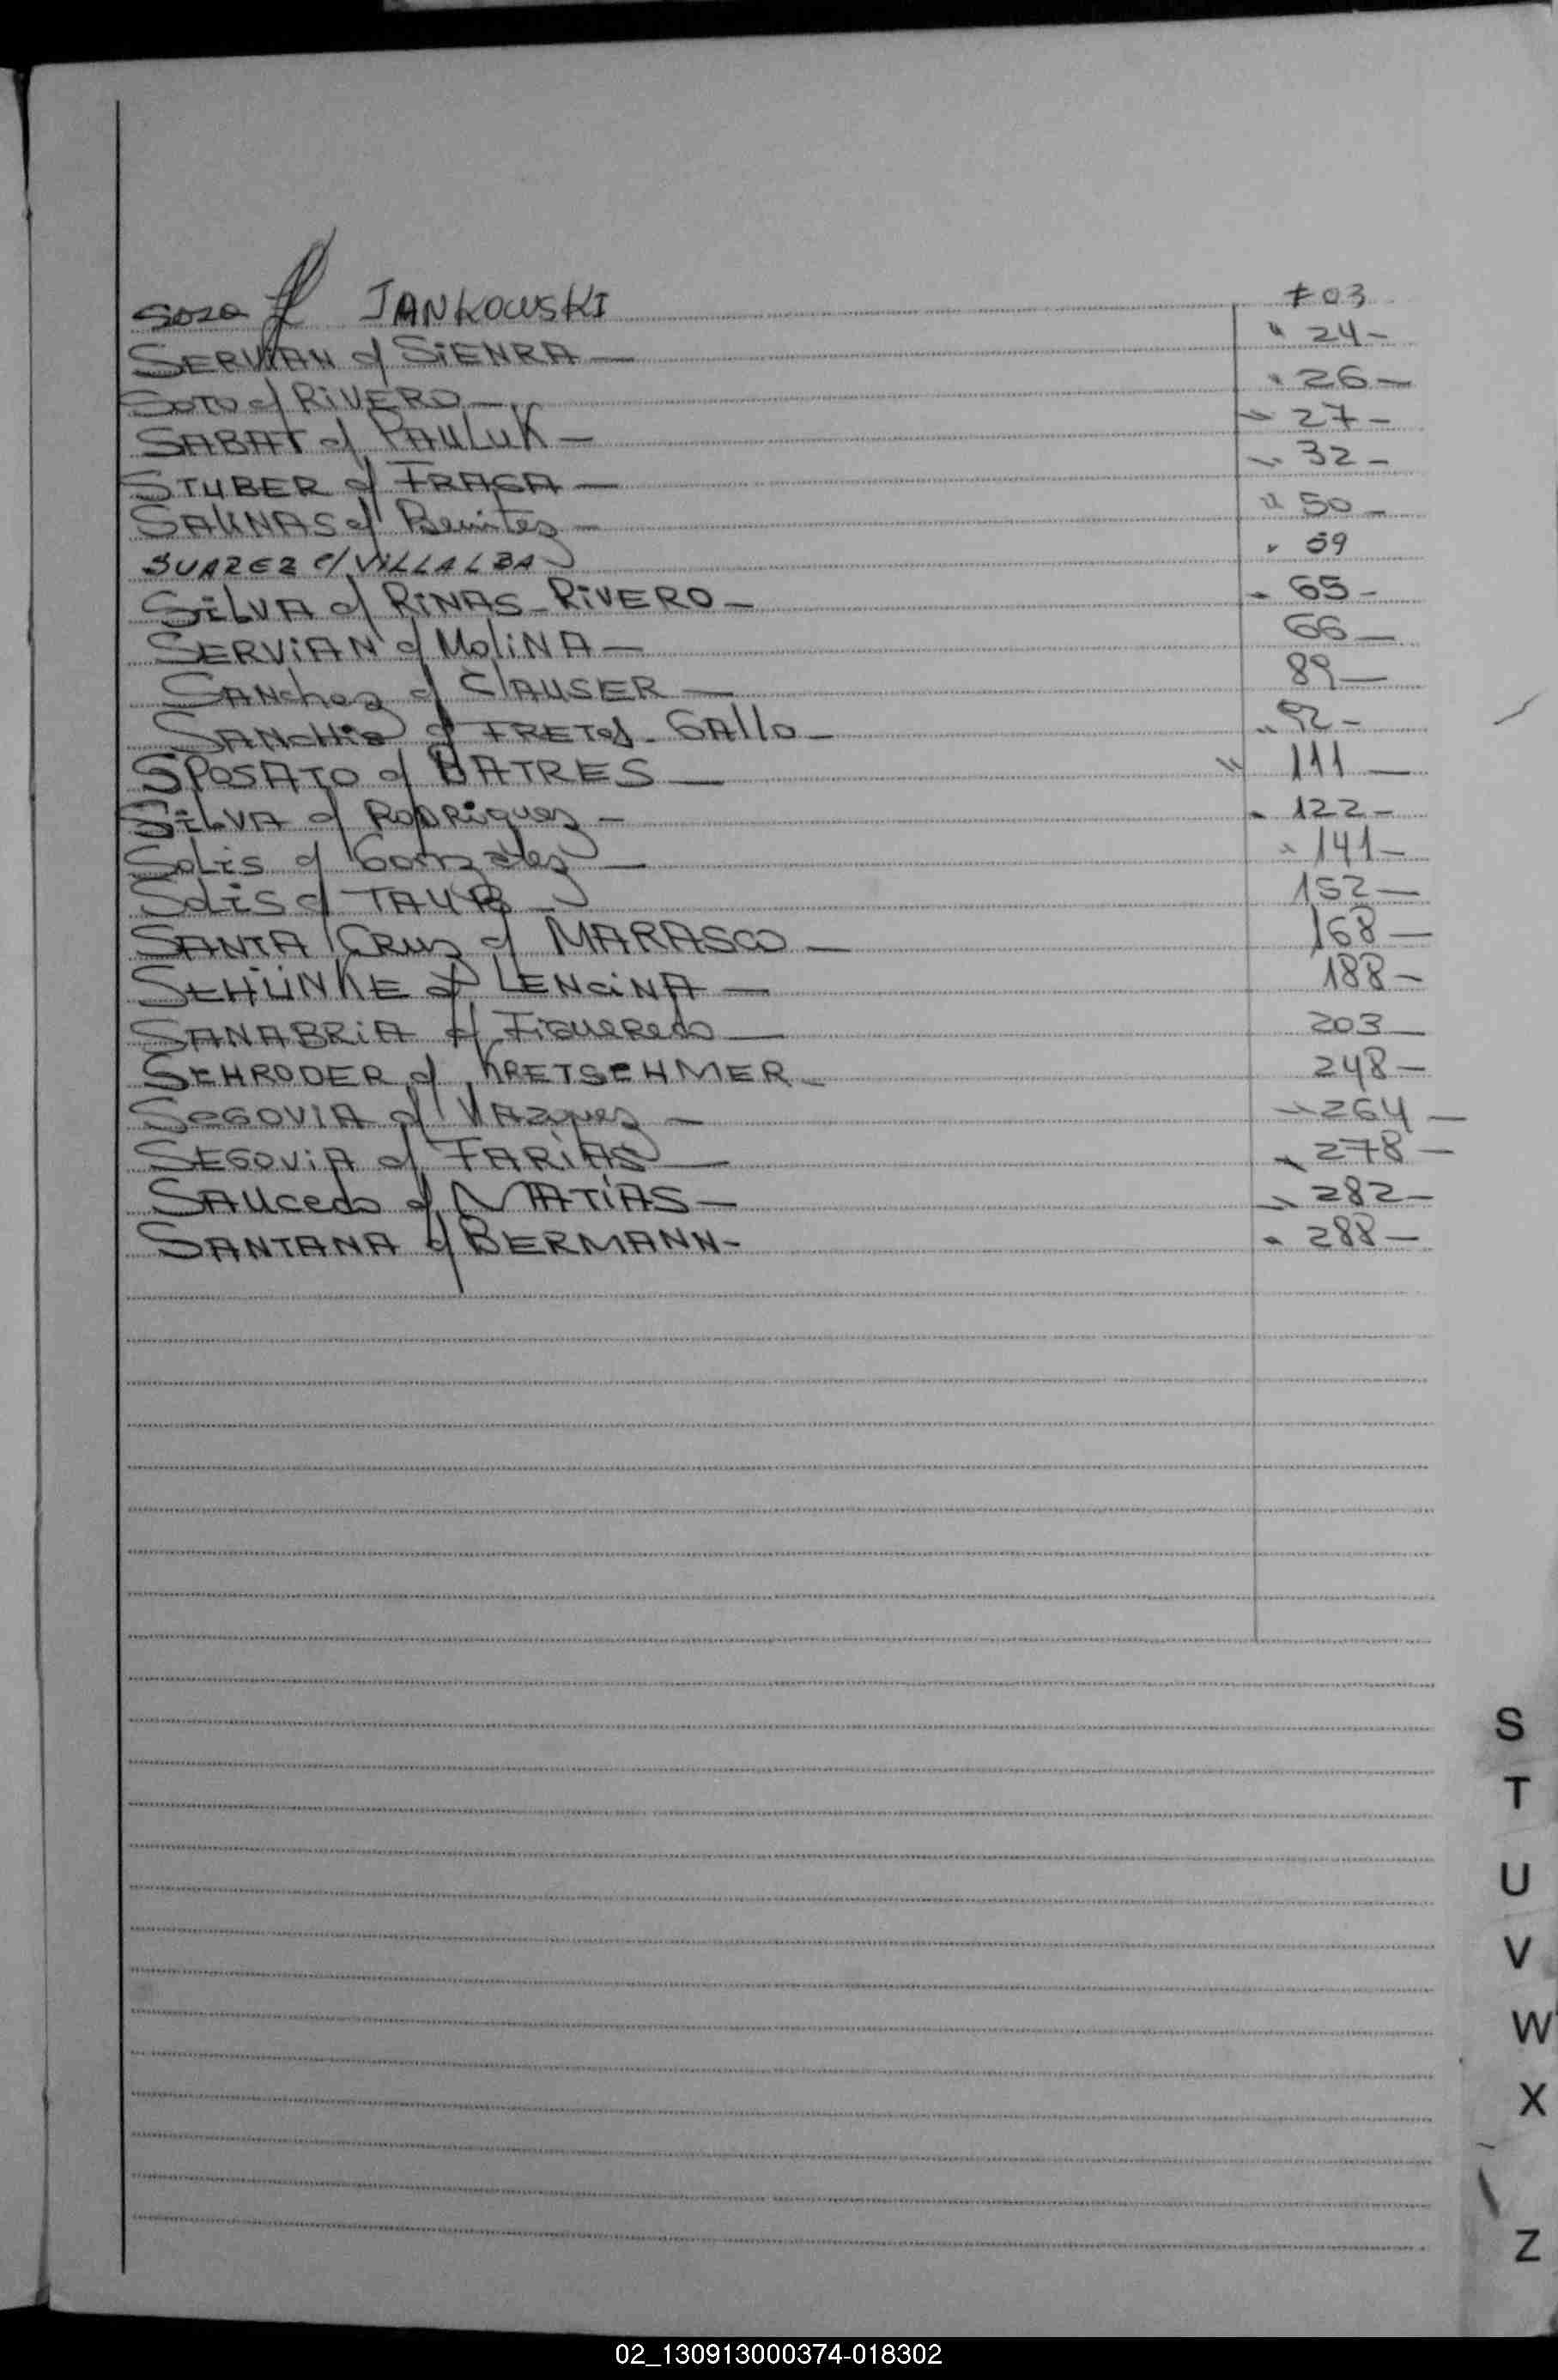 Soza c/ JANKOWSKI # 03
SERVIAN c/ SiENRA — " 24 -
SOTO c/ RIVERO — " 26 —
SABAT c/ PAULUK — " 27 -
STUBER c/ FRAGA — " 32 -
SALINAS c/ Benitez — " 50 -
SUAREZ c/ VILLALBA " 59
SiLVA c/ RiNAS - RiVERO — " 65 -
SERViAN c/ MoliNA — 66 —
SANchez c/ ClAUSER — 89 —
SANCHiz c/ FRETES - GAllo — " 92 -
SPOSATO c/ BATRES — " 111 —
SiLVA c/ RODRiguez — " 122 -
SoLis c/ Gonzalez — " 141 -
SoLis c/ TAUB — 152 —
SANTA CRUz c/ MARASCO — 168 —
SCHÜNKE c/ LENCiNA — 188 -
SANABRiA c/ FiGUeRedo — 203 —
SCHRODER c/ KRETSCHMER - 248 —
SeGOVIA c/ VAzquez — " 264 —
SEGOViA c/ FARiAS — " 278 —
SAUcedo c/ MATiAS — " 282 -
SANTANA c/ BERMANN - " 288 —
S
T
U
V
W
X
Z
02_130913000374-018302